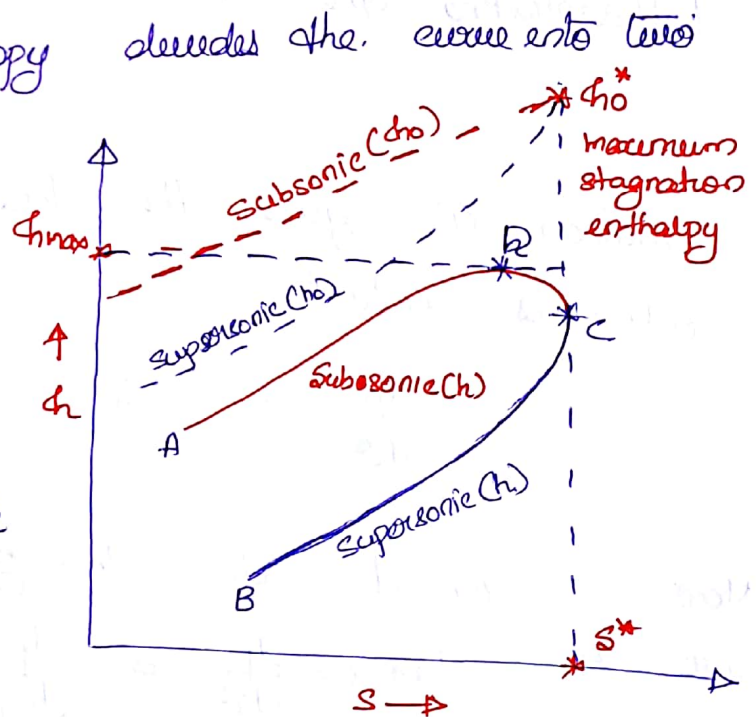 opy divides the curve into two
ho*
maximum
stagnation
enthalpy
Subsonic (ho)
hmax
R
supersonic (ho)
C
h
Subsonic (h)
A
supersonic (h)
B
S*
S